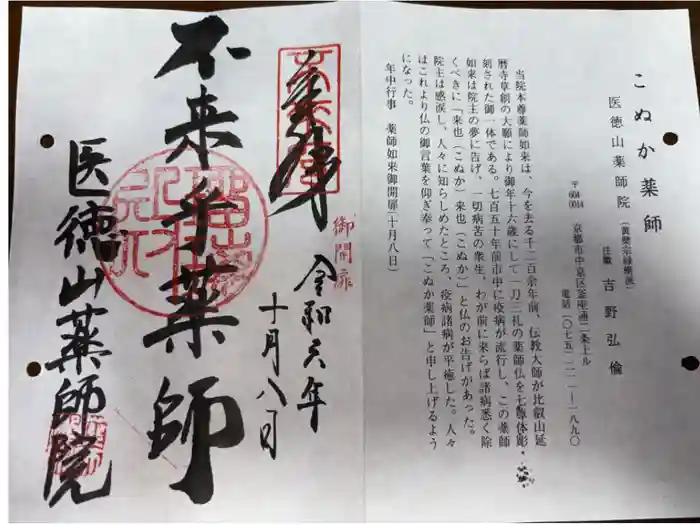 こぬか薬師
医徳山薬師院（黄檗宗緑樹派）
住職　吉野弘倫
〒604-0014　京都市中京区釜座通二条上ル
電話（〇七五）二一一ー一八九〇
当院本尊薬師如来は、今を去る千二百余年前、伝教大師が比叡山延
暦寺草創の大願により御年十六歳にして一刀三礼の薬師仏を七尊体彫
刻された御一体である。七百五十年前市中に疫病が流行し、この薬師
如来は院主の夢に告げ、一切病苦の衆生、わが前に来らば諸病悉く除
くべきに「来也（こぬか）来也（こぬか）」と仏のお告げがあった。
院主は感涙し、人々に知らしめたところ、疫病諸病が平癒した。人々
はこれより仏の御言葉を仰ぎ奉って「こぬか薬師」と申し上げるよう
になった。
年中行事　薬師如来御開扉（十月八日）
奉拝
御開扉
令和六年
十月八日
不来乎薬師
医徳山薬師院